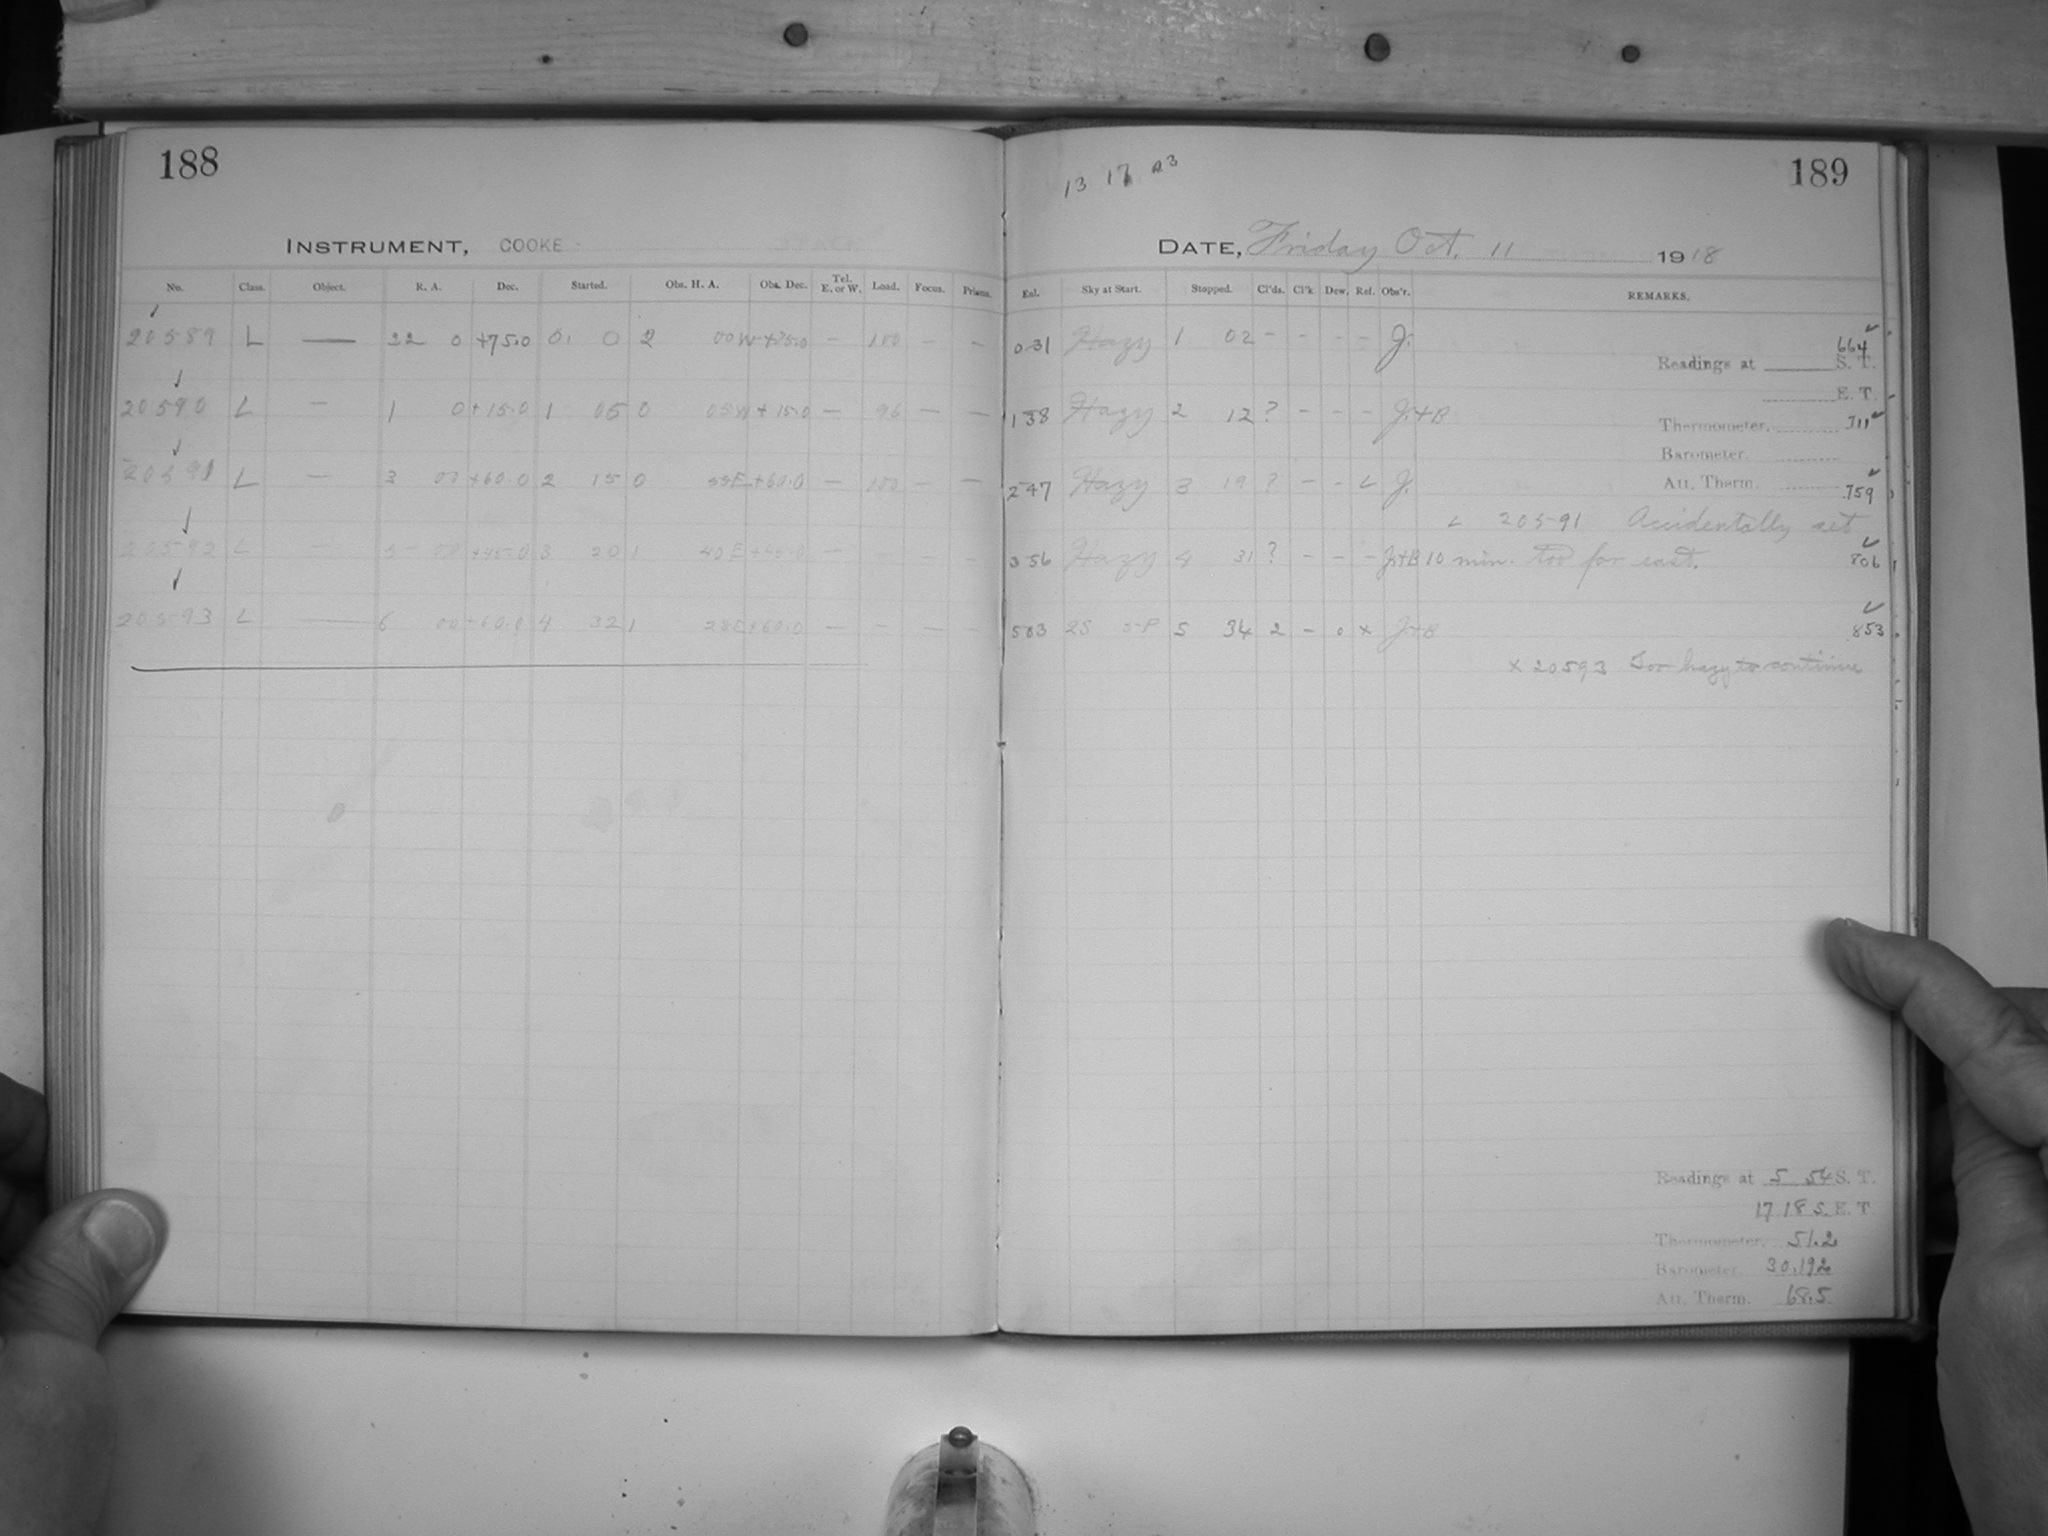 188
INSTRUMENT, COOKE
No. Class. Object. R. A. Dec. Started. Obs. H. A. Obs. Dec. Tel. E. or W. Load. Focus. Prisms.
20589 L — 22 0 +75.0 0 0 2 00W +75.0 — 100 - -
20590 L — 1 0 +15.0 1 05 0 05W + 15.0 — 96 — —
20591 L — 3 00 +60.0 2 15 0 55E +60.0 — 100 - —
20592 L — 5 00 +45.0 3 20 1 40E +45.0 —
20593 L — 6 00 +60.0 4 32 1 28E +60.0 — — — —
13 17 23
189
DATE, Friday Oct. 11 1918
Exl. Sky at Start. Stopped. Cl'ds. Cl'k Dew, Ref. Obs'r. REMARKS.
031 Hazy 1 02 - - - - J. 664
Readings at S. T.
E. T.
138 Hazy 2 12 ? - - - J.+B 711
Thermometer.
Barometer.
Att. Therm.
247 Hazy 3 19 ? - - L J. 759
L 20591 Accidentally set
356 Hazy 4 31 ? - - - J.+B 10 min. too far east. 806
503 2S 5 34 2 - 0 x J.+B 853
x 20593 Too hazy to continue
Readings at 5 54 S. T.
17 18 S. E. T
Thermometer. 51.2
Barometer. 30.192
Att. Therm. 68.5